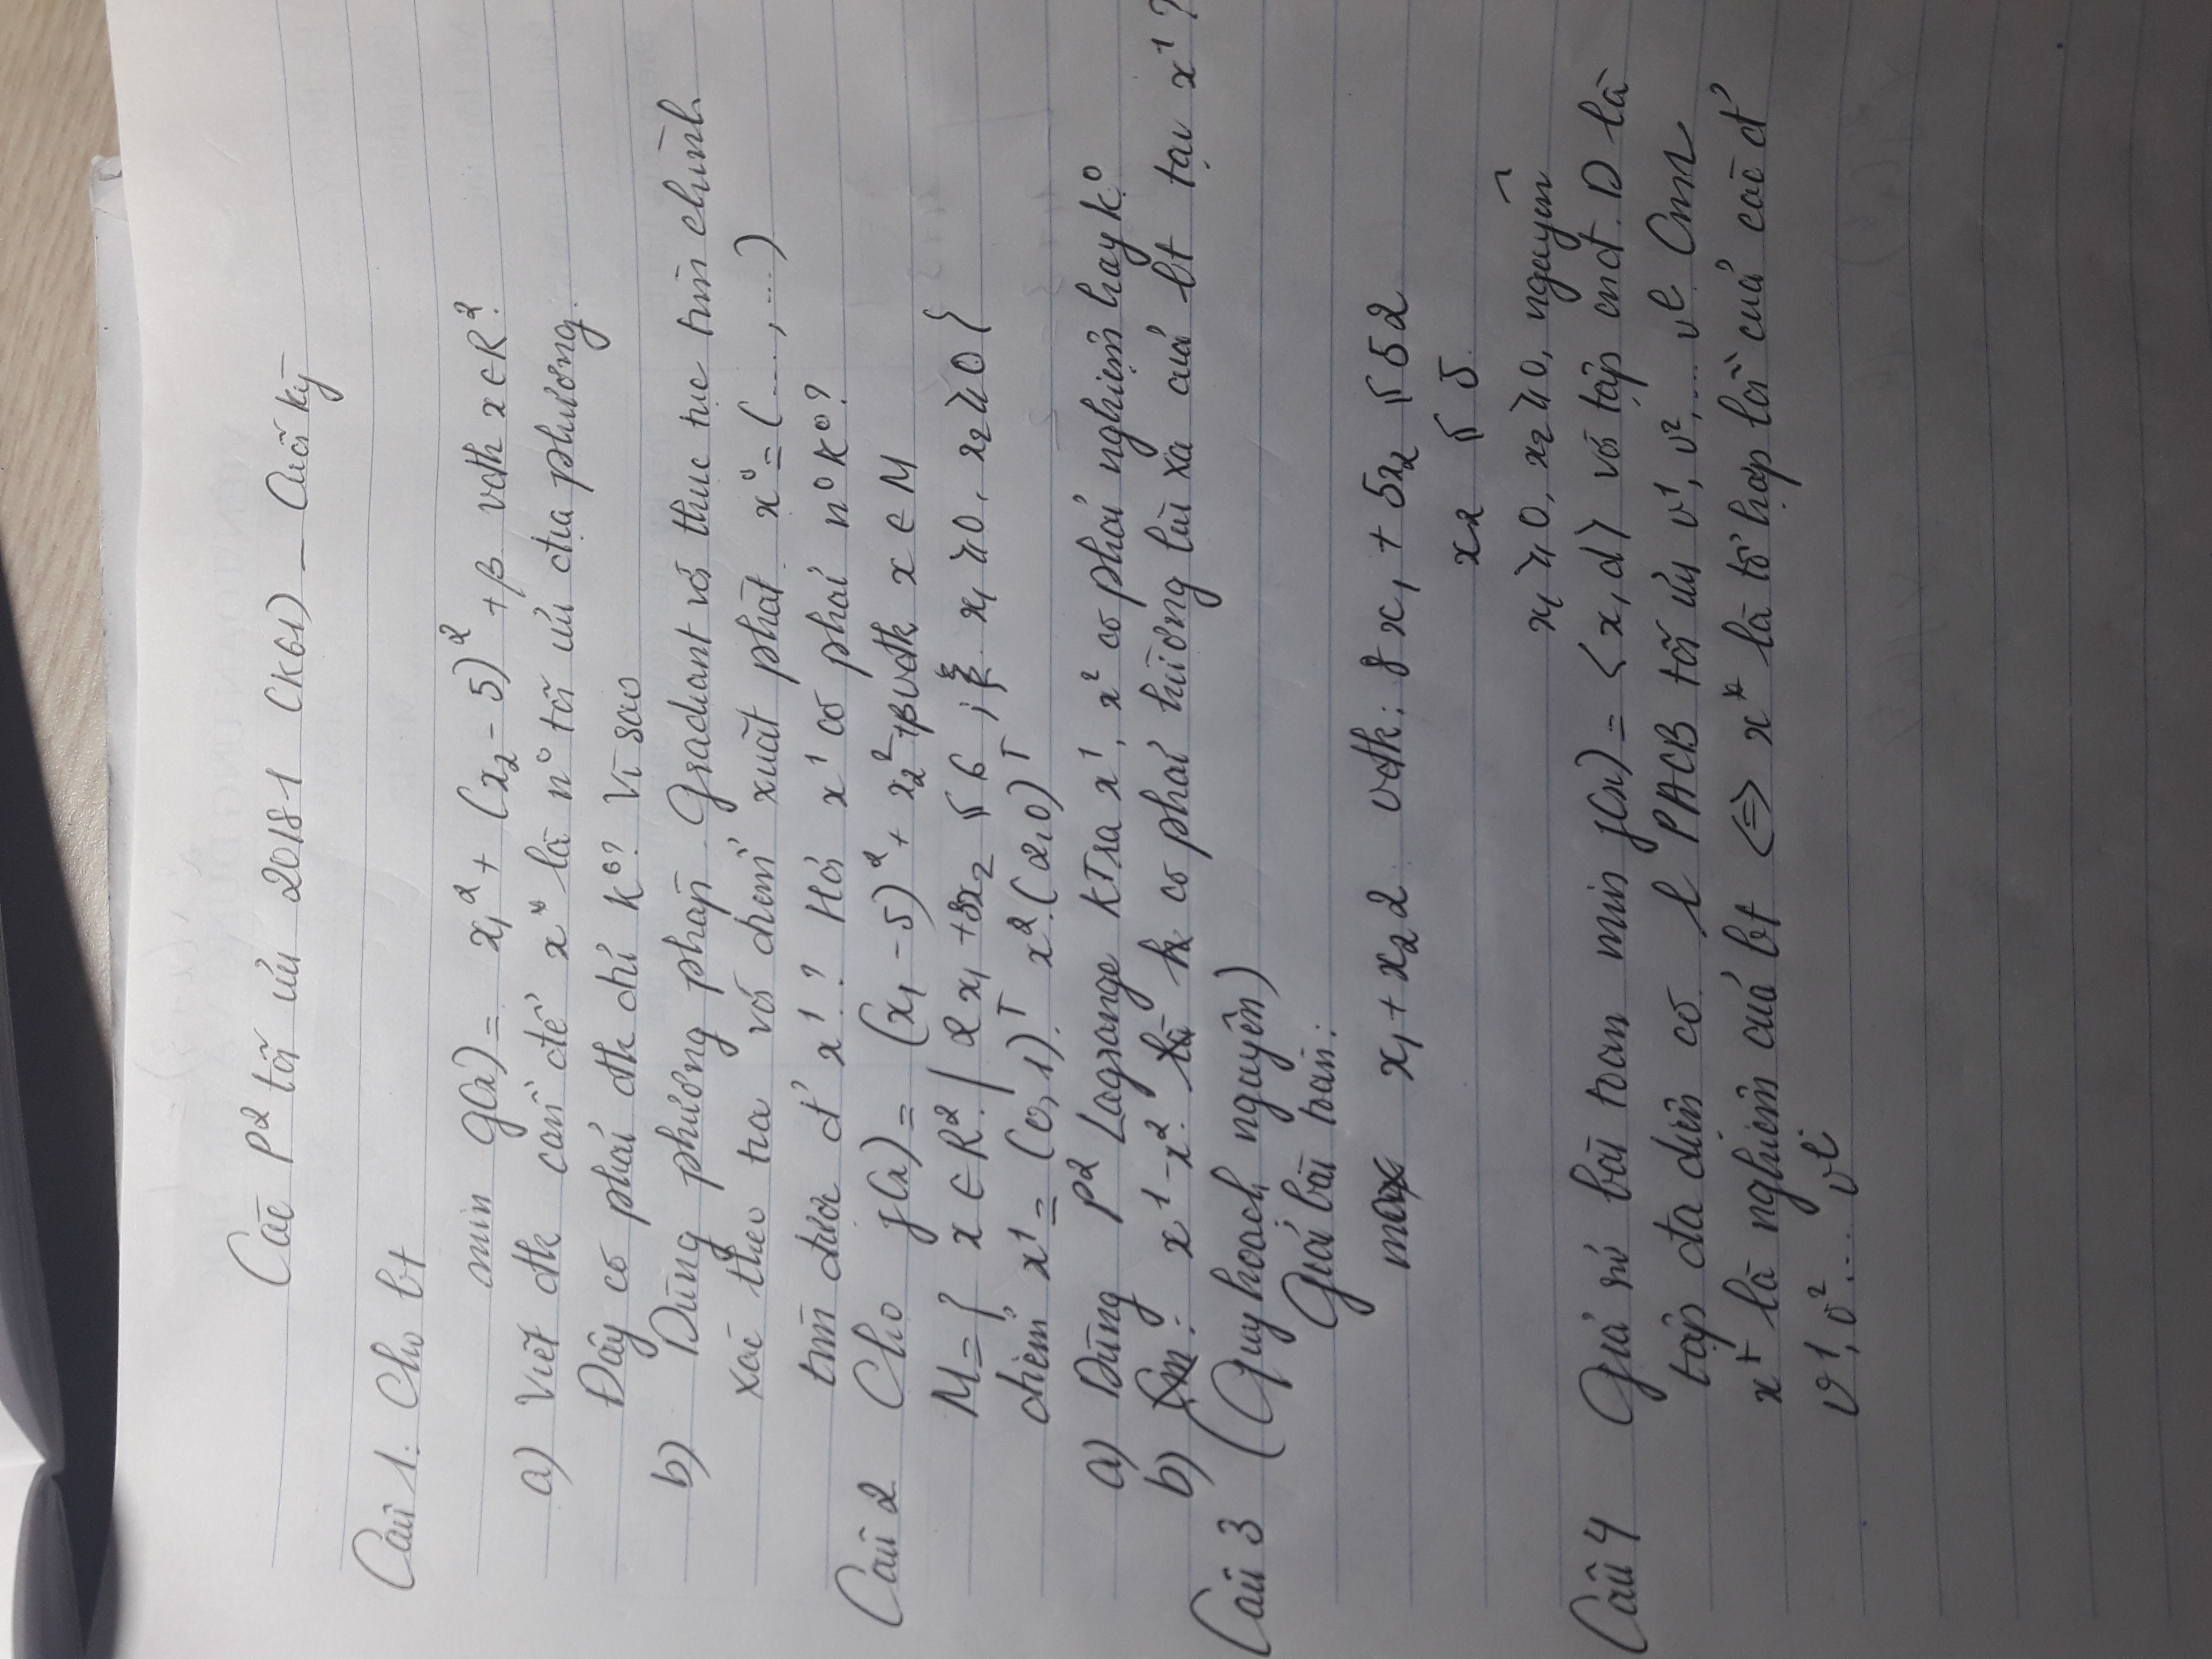 Các P² tối ưu 20181 (K61) – Cuối kỳ
Câu 1: Cho bt
min g(x) = x₁² + (x₂ - 5)² + β vđk x ∈ R²
a) Viết đk cần để x* là n⁰ tối ưu địa phương.
Đây có phải đk đủ k⁰? Vì sao
b) Dùng phương pháp Gradiant với thục tục tìm chính
xác theo tia với điểm xuất phát x⁰ = (..., ...)
tìm được đ' x¹? Hỏi x¹ có phải n⁰ k⁰?
Câu 2 Cho f(x) = (x₁ - 5)² + x₂² + β vđk x ∈ M
M = { x ∈ R² | 2x₁ + 3x₂ ≤ 6 ; x₁ ≥ 0, x₂ ≥ 0 }
điểm x¹ = (0, 1)ᵀ. x² (2,0)ᵀ
a) Dùng P² Lagrange KTra x¹, x² có phải nghiệm hay k⁰
b) Cm: x¹ - x² là k có phải hướng lùi xa của bt tại x¹?
Câu 3 (Quy hoạch nguyên)
Giải bài toán:
max x₁ + x₂ 2 vđk: 8x₁ + 5x₂ ≤ 52
x₂ ≤ 5.
x₁ ≥ 0, x₂ ≥ 0, nguyên
Câu 4 Giả sử bài toán min f(x) = ⟨x, d⟩ với tập cnđ. D là
tập đa diện có l PACB tối ưu v¹, v², ... vˡ Cmr
x* là nghiệm của bt ⇔ x* là tổ hợp lồi của các đ'
v¹, v² ... vˡ